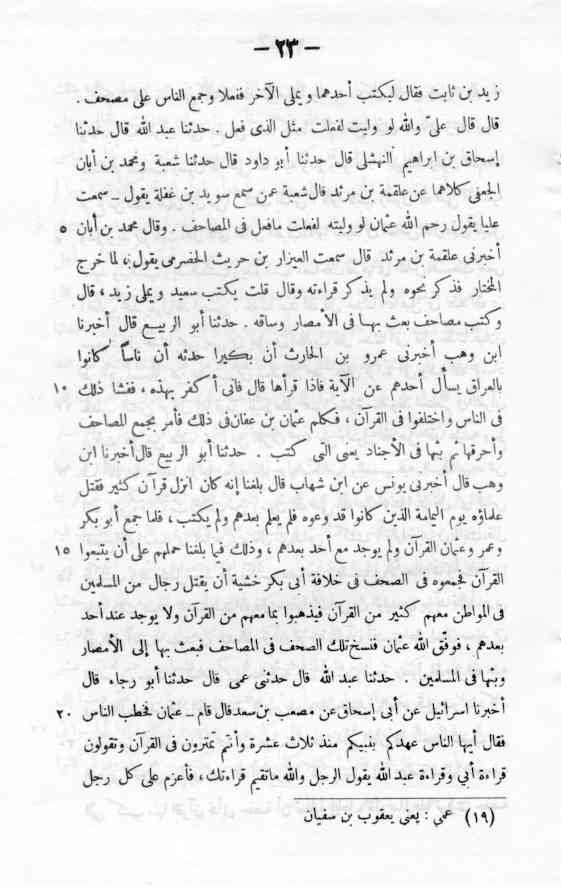 — ٢٣ —
زيد بن ثابت فقال ليكتب أحدهما ويملى الآخر ففعلا وجمع الناس على مصحف .
قال قال علىّ والله لو وليت لفعلت مثل الذى فعل . حدثنا عبد الله قال حدثنا
إسحاق بن ابراهيم النهشلى قال حدثنا أبو داود قال حدثنا شعبة ومحمد بن أبان
الجعفى كلاهما عن علقمة بن مرثد قال شعبة عن سمع سويد بن غفلة يقول ـ سمعت
عليا يقول رحم الله عثمان لو وليته لفعلت مافعل فى المصاحف . وقال محمد بن أبان ٥
أخبرنى علقمة بن مرثد قال سمعت العيزار بن حريث الحضرمى يقول لما خرج
المختار فذكر نحوه ولم يذكر قراءته وقال قلت يكتب سعيد ويملى زيد ، قال
وكتب مصاحف بعث بها فى الأمصار وساقه . حدثنا أبو الربيع قال أخبرنا
ابن وهب أخبرنى عمرو بن الحارث أن بكيرا حدثه أن ناساً كانوا
بالعراق يسأل أحدهم عن الآية فاذا قرأها قال فانى أكفر بهذه ، ففشا ذلك ١٠
فى الناس واختلفوا فى القرآن ، فكلم عثمان بن عفان فى ذلك فأمر بجمع المصاحف
وأحرقها ثم بثها فى الأجناد يعنى التى كتب . حدثنا أبو الربيع قال أخبرنا ابن
وهب قال أخبرنى يونس عن ابن شهاب قال بلغنا إنه كان انزل قرآن كثير فقتل
علماؤه يوم اليمامة الذين كانوا قد وعوه فلم يعلم بعدهم ولم يكتب ، فلما جمع أبو بكر
وعمر وعثمان القرآن ولم يوجد مع أحد بعدهم ، وذلك فيما بلغنا حملهم على أن يتبعوا ١٥
القرآن فجمعوه فى الصحف فى خلافة أبى بكر خشية أن يقتل رجال من المسلمين
فى المواطن معهم كثير من القرآن فيذهبوا بما معهم من القرآن ولا يوجد عند أحد
بعدهم ، فوفّق الله عثمان فنسخ تلك الصحف فى المصاحف فبعث بها إلى الأمصار
وبثها فى المسلمين . حدثنا عبد الله قال حدثنى عمى قال حدثنا أبو رجاء قال
أخبرنا اسرائيل عن أبى إسحاق عن مصعب بن سعد قال قام ـ عثمان فخطب الناس ٢٠
فقال أيها الناس عهدكم بنبيكم منذ ثلاث عشرة وأنتم تمترون فى القرآن وتقولون
قراءة أبي وقراءة عبد الله يقول الرجل والله ماتقيم قراءتك ، فأعزم على كل رجل
(١٩) عمي : يعنى يعقوب بن سفيان